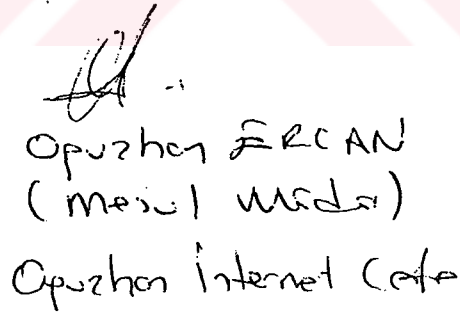 Oğuzhan ERCAN
(Mesul Müdür)
Oğuzhan İnternet Cafe